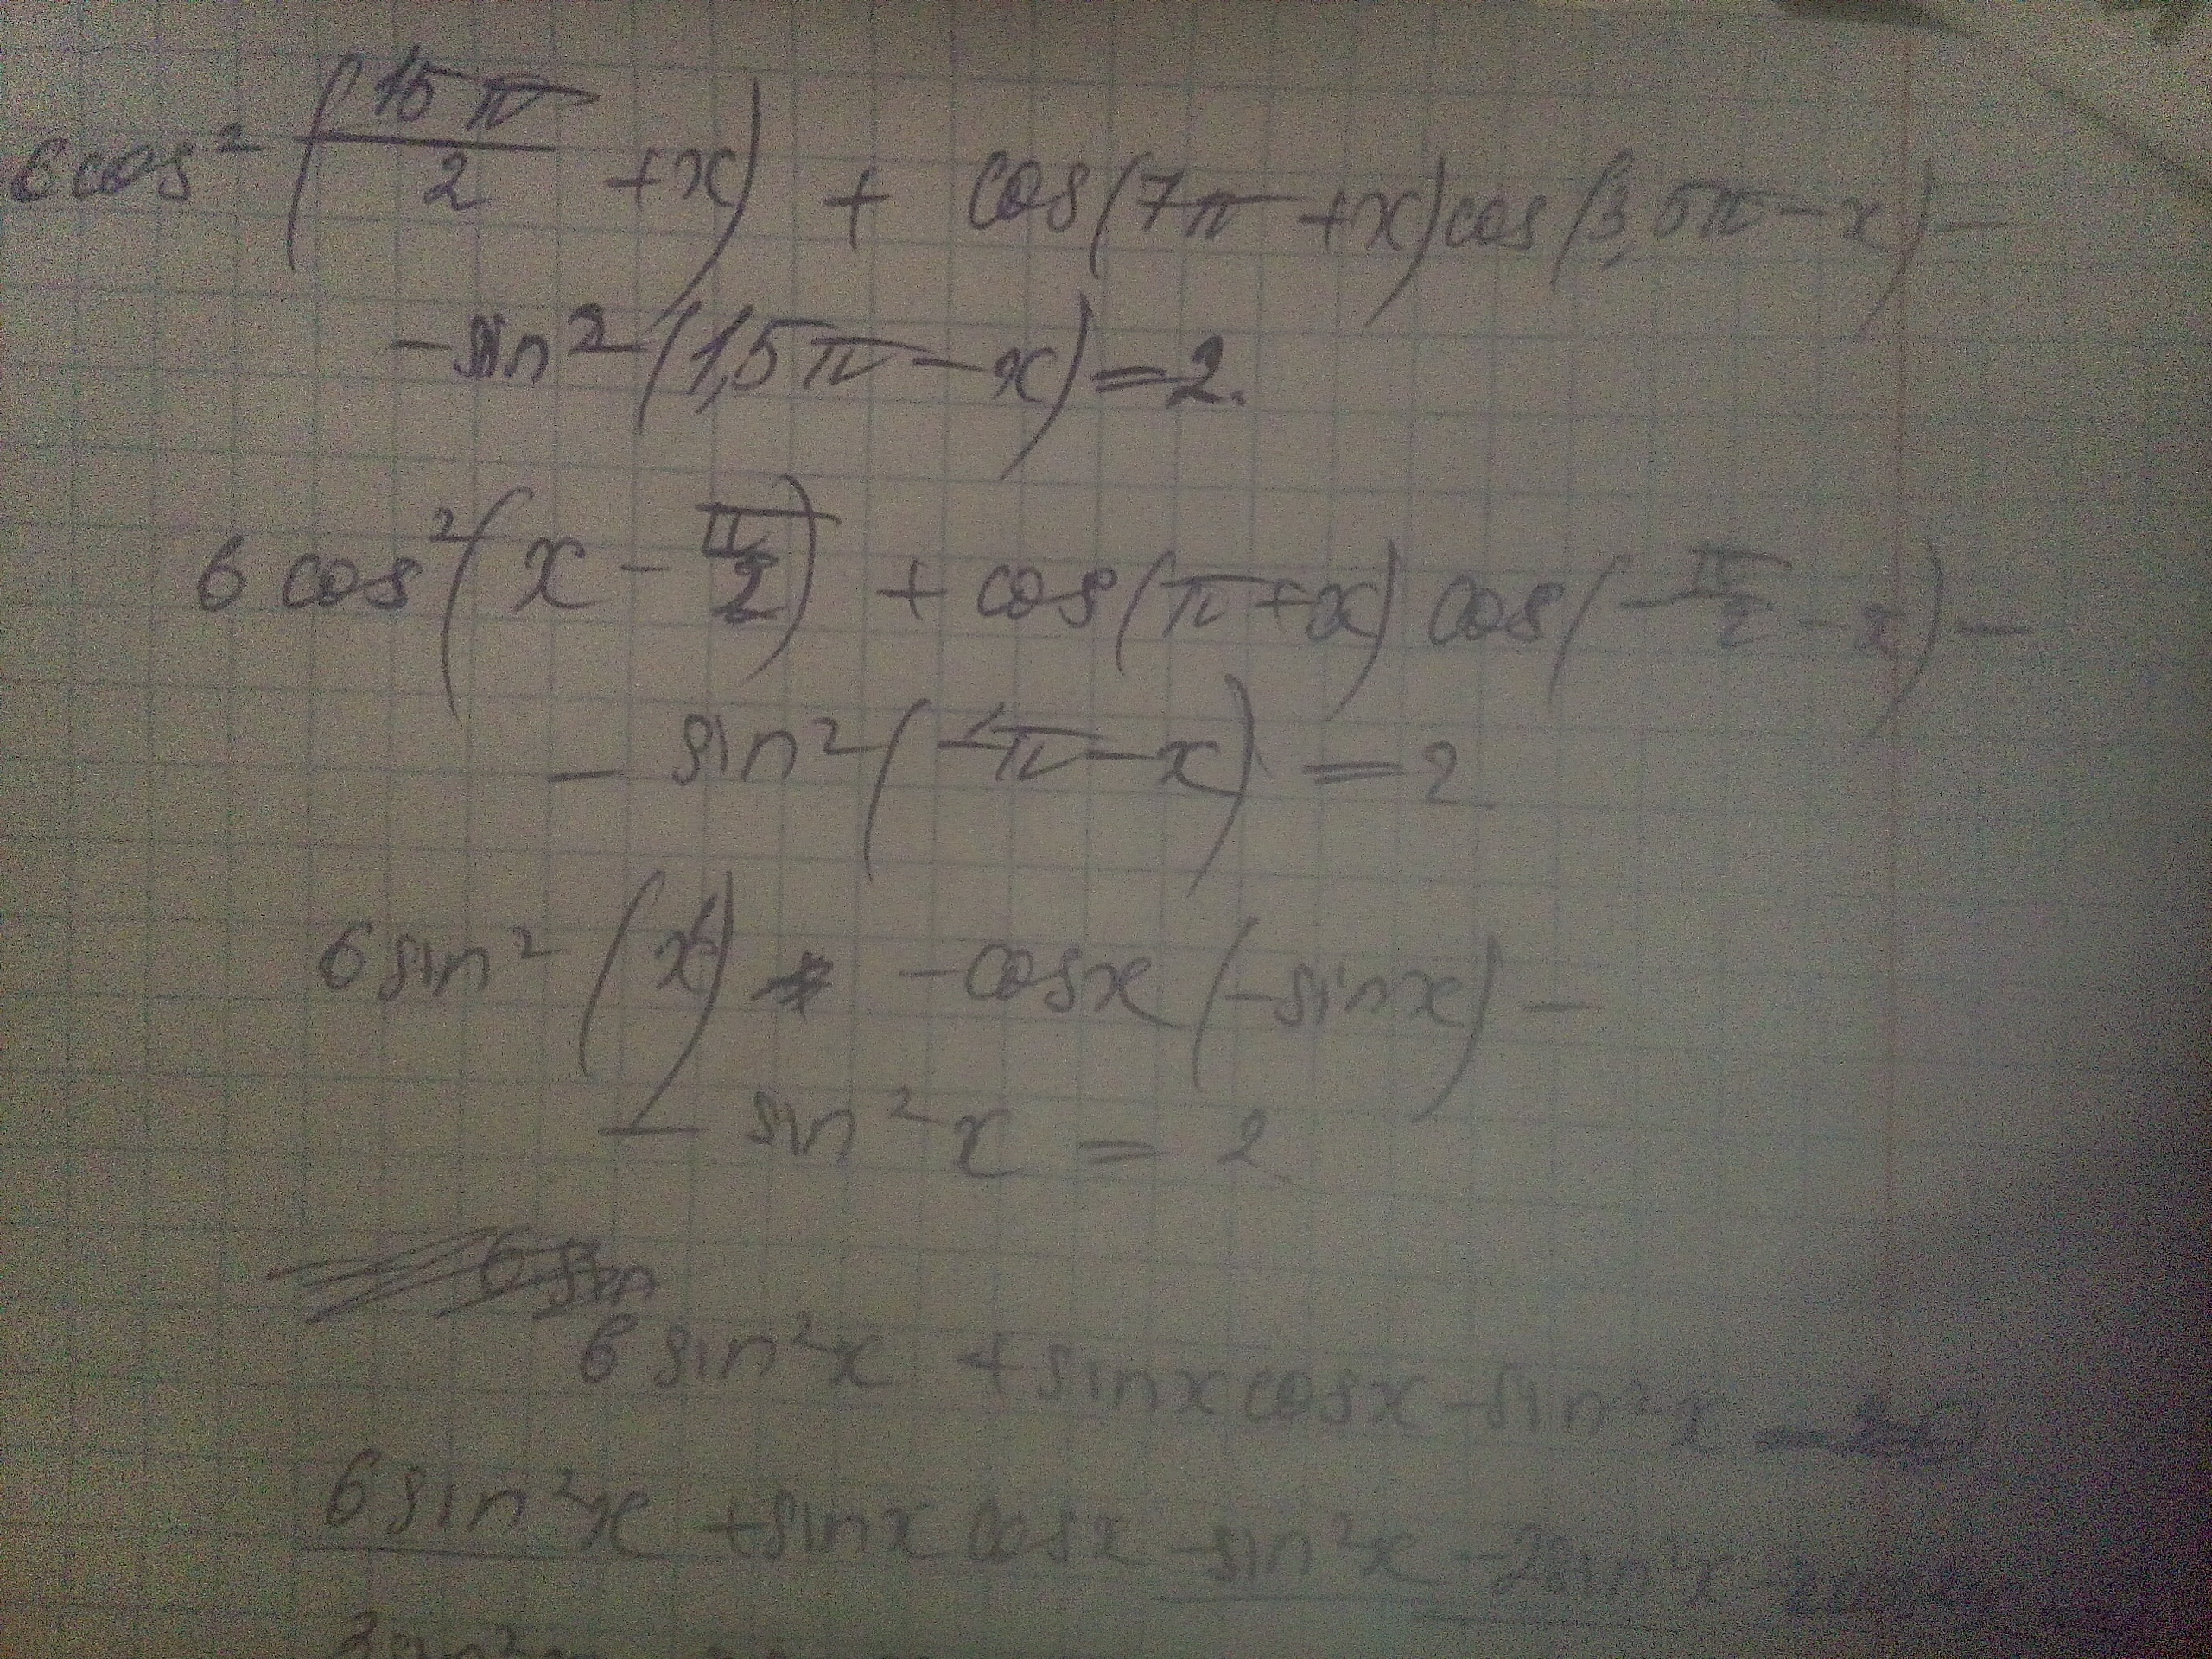 6cos²(15π/2 + x) + cos(7π + x)cos(3,5π - x) -
- sin²(1,5π - x) = 2.
6 cos²(x - π/2) + cos(π + x) cos(-π/2 - x) -
- sin²(-π - x) = 2
6 sin²(x) - cosx(-sinx) -
- sin²x = 2
6 sin
6 sin²x + sinx cosx - sin²x
6 sin²x + sinx cosx - sin²x - 2sin²x